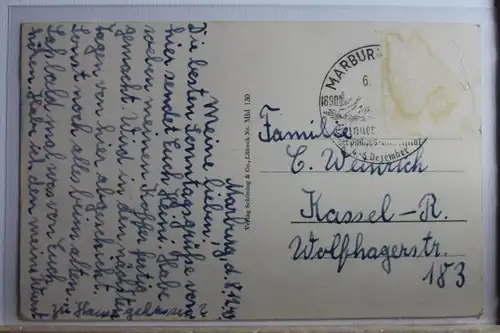 Marburg, d. 8.12.40
Meine Lieben,
Die besten Sonntagsgrüße von
hier sendet Euch Heini. Habe
soeben meinen Koffer fertig
gemacht. Wird in den nächsten
tagen von hier abgeschickt.
Sonst noch alles beim alten.
Laßt bald mal was von Euch
hören. Habe ich den meine
zu Hause gelassen?
Verlag Schöning & Co., Lübeck Nr. Mbl 130
MARBUR
6.
1890
Männer
4. Dezember
Familie
C. Weinrich
Kassel-R.
Wolfhagerstr.
183